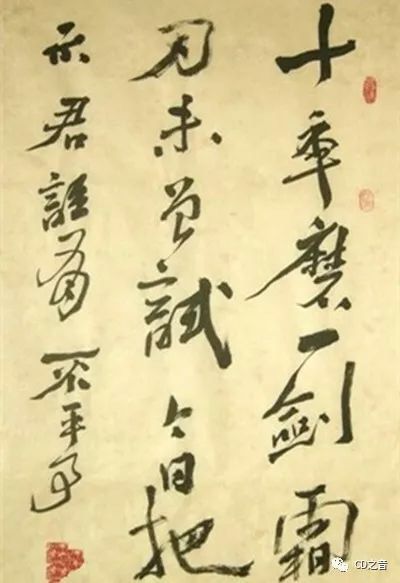 十年磨一劍霜
刃未曾試今日把
示君誰爲不平事
CD之音